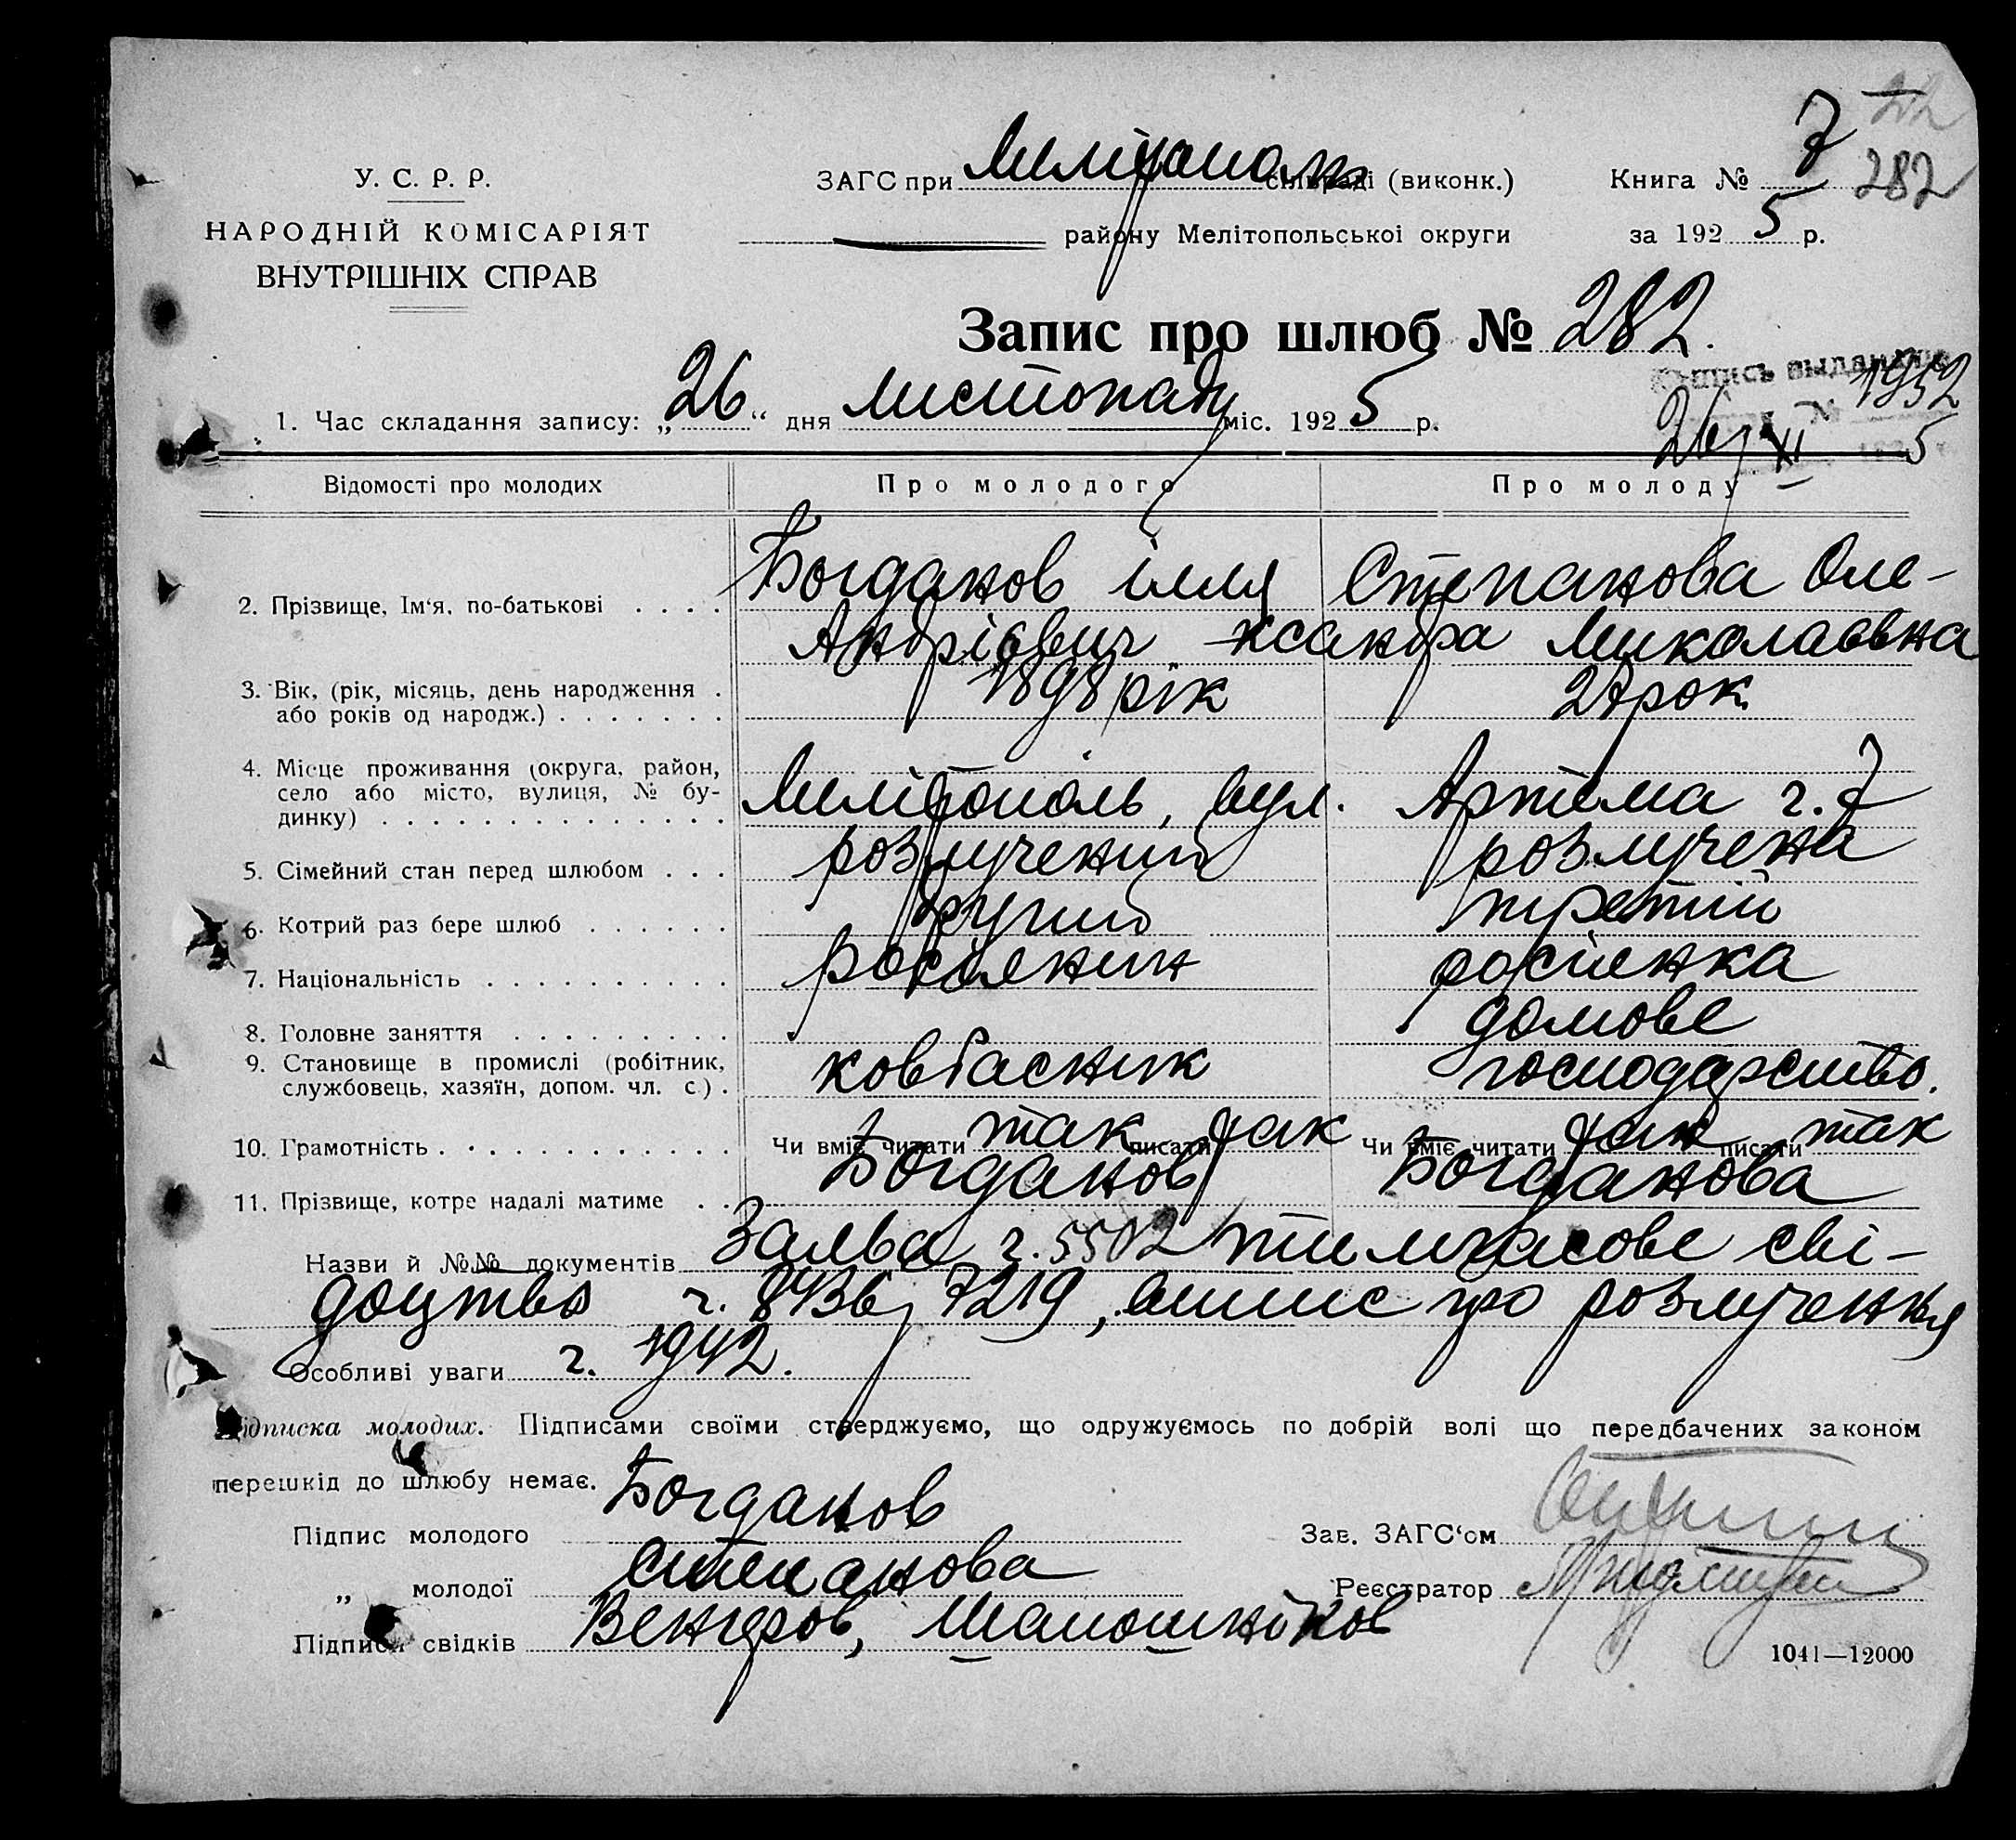 282
У. С. Р. Р.
НАРОДНІЙ КОМІСАРІЯТ
ВНУТРІШНІХ СПРАВ
ЗАГС при Мелітополь сільраді (виконк.)
Книга № 7
району Мелітопольської округи
за 1925 р.
Запис про шлюб № 282.
1. Час складання запису: „26“ дня листопаду міс. 1925 р.
№ 1952
26/XI 5
Відомості про молодих Про молодого Про молоду
2. Прізвище, Ім‘я, по-батькові . . . . Богданов Ілля Степанова Оле-
Андрієвич ксандра Миколаєвна
3. Вік, (рік, місяць, день народження . 1898 рік 27 рок
або років од народж.) . . . . . . .
4. Місце проживання (округа, район,
село або місто, вулиця, № бу- Мелітополь, вул. Артема ч. 7
динку) . . . . . . . . . . . . . .
5. Сімейний стан перед шлюбом . . . розлучений розлучена
6. Котрий раз бере шлюб . . . . . . другий третій
7. Національність . . . . . . . . . . росіянин росіенка
8. Головне заняття . . . . . . . . . домове
9. Становище в промислі (робітник, ковбасник господарство.
службовець, хазяїн, допом. чл. с.) .
10. Грамотність . . . . . . . . . . . . Чи вміє читати так писати так Чи вміє читати так писати так
11. Прізвище, котре надалі матиме . . Богданов Богданова
Назви й №№ документів Заява ч. 5502 тимчасове сві-
доцтво ч. 8436, 7219, випис про розлучення
Особливі уваги ч. 1942.
Підписка молодих. Підписами своїми стверджуємо, що одружуємось по добрій волі що передбачених законом
перешкід до шлюбу немає.
Підпис молодого Богданов
Зав. ЗАГС‘ом
„ молодої Степанова
Реєстратор
Підписи свідків Венгеров, Шапошніков
1041—12000